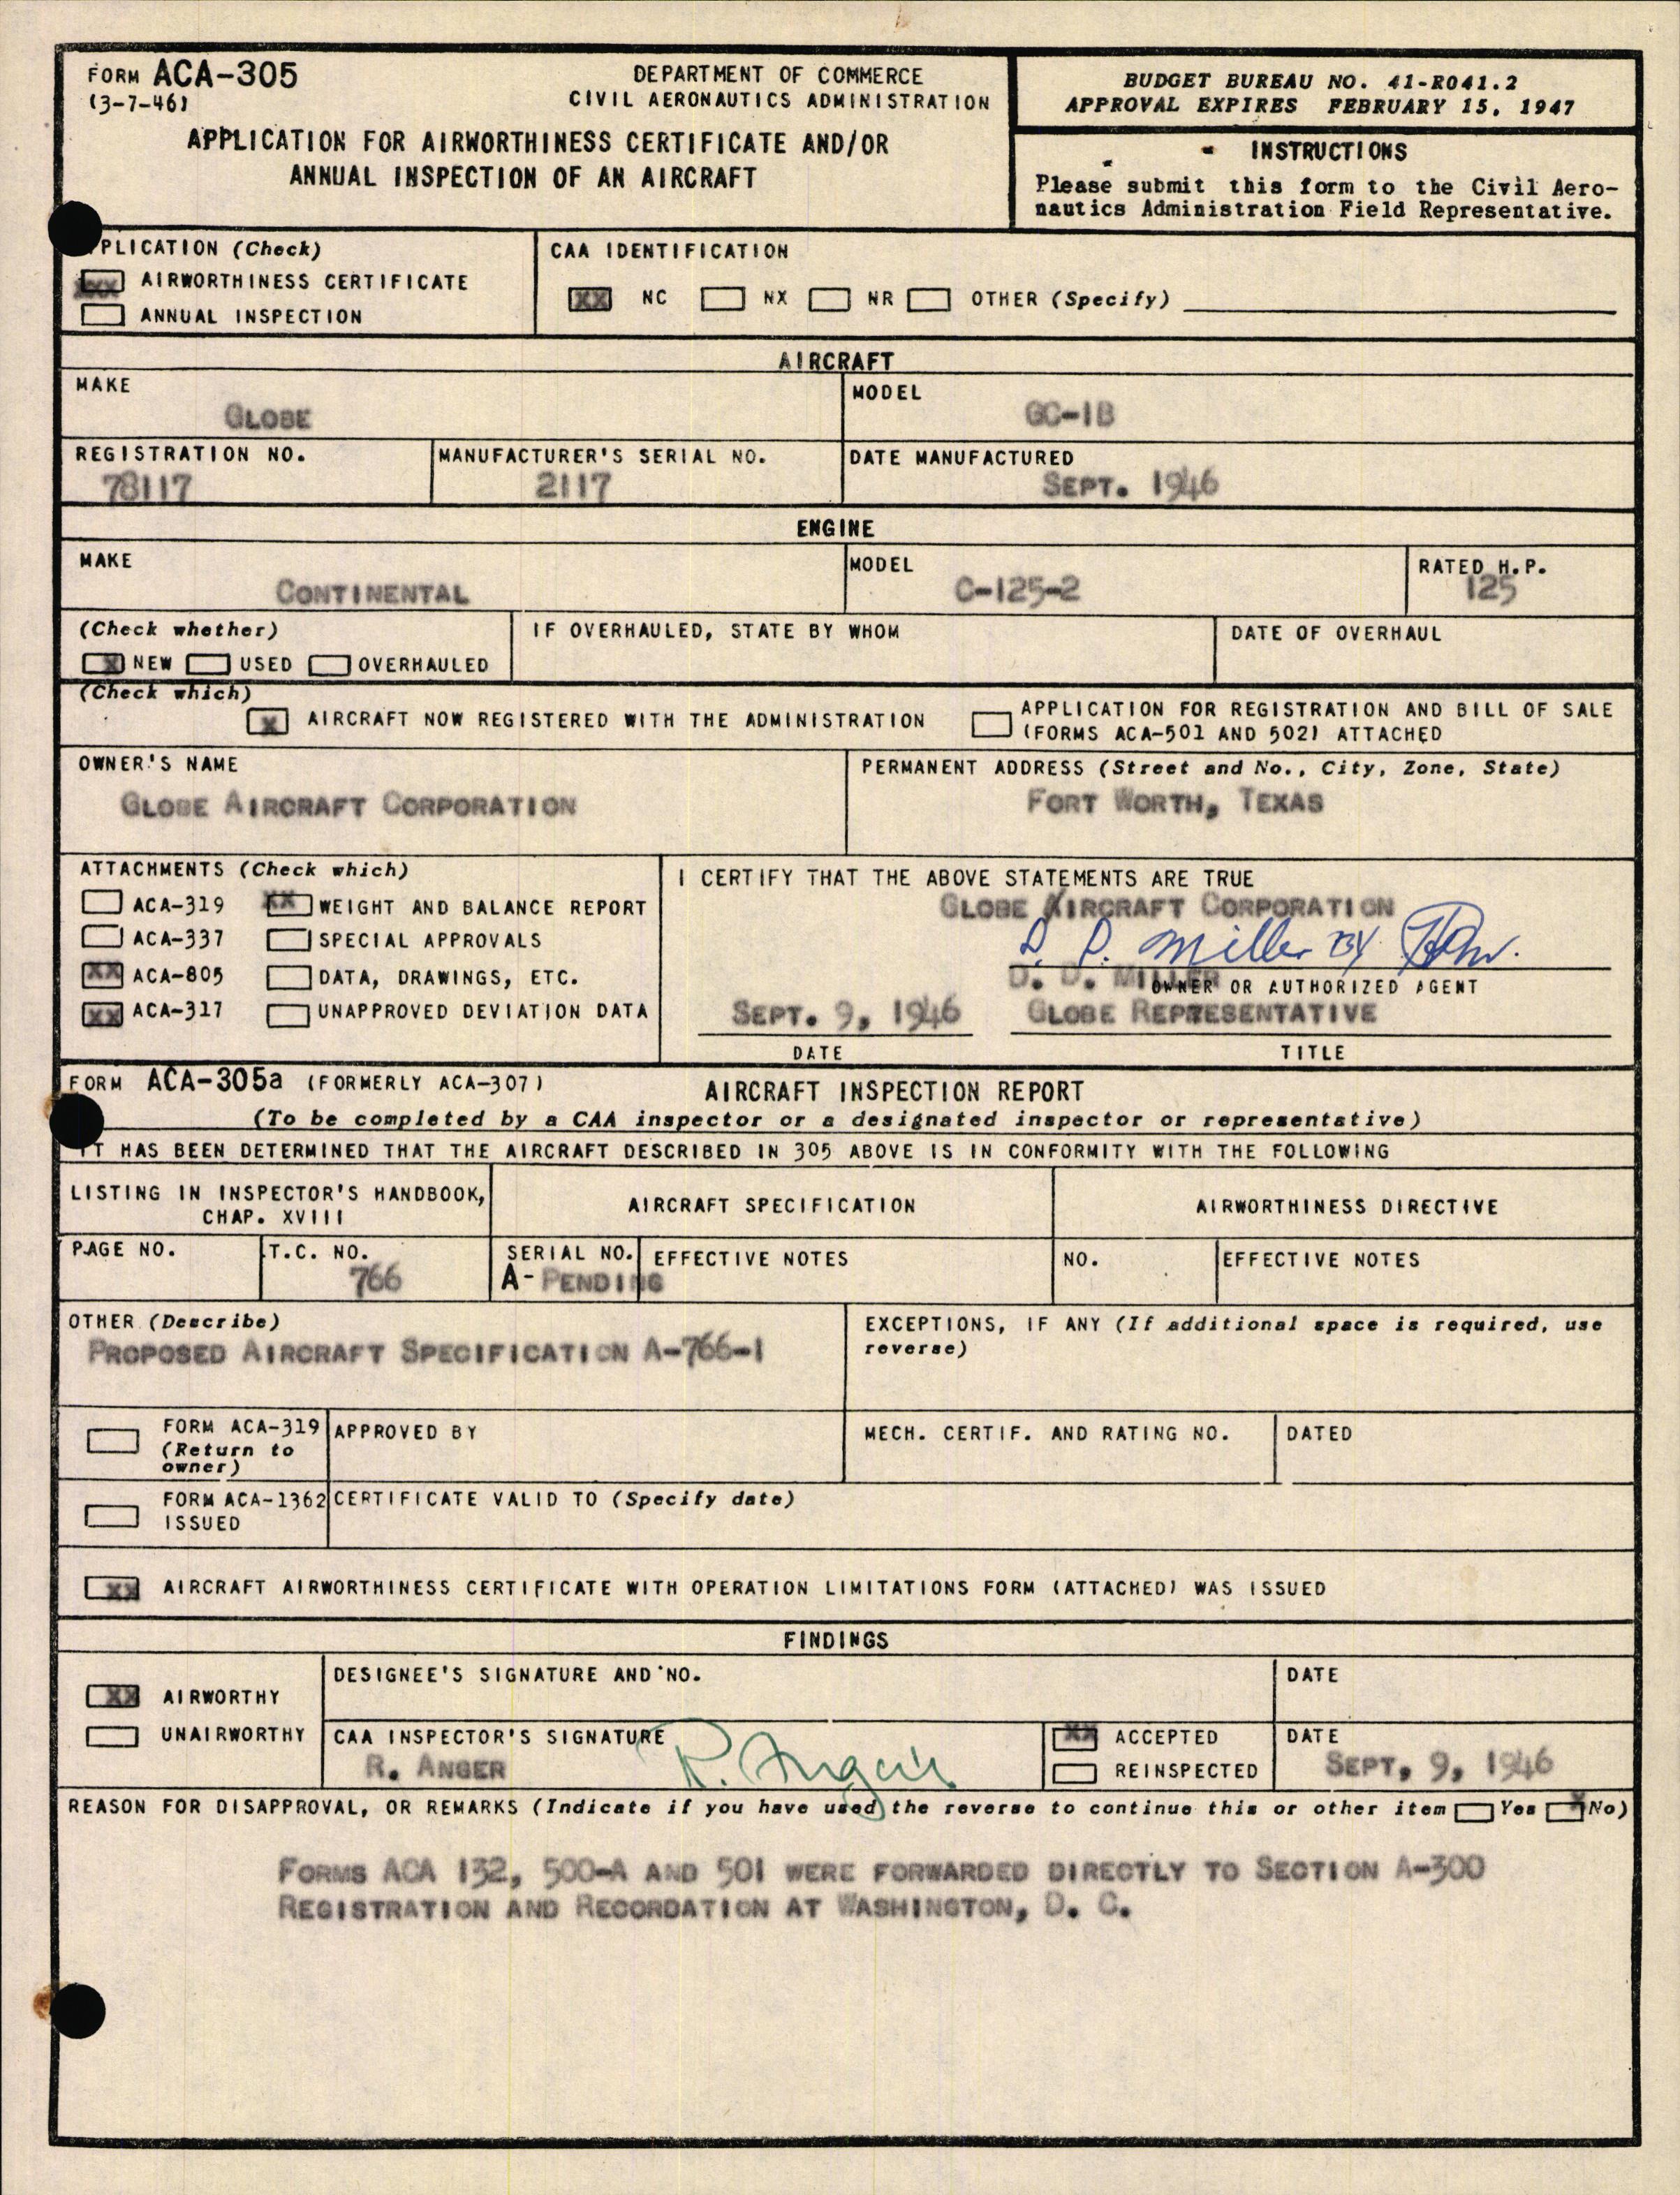 FORM ACA-305
(3-7-46)
DEPARTMENT OF COMMERCE
CIVIL AERONAUTICS ADMINISTRATION
APPLICATION FOR AIRWORTHINESS CERTIFICATE AND/OR
ANNUAL INSPECTION OF AN AIRCRAFT
BUDGET BUREAU NO. 41-R041.2
APPROVAL EXPIRES FEBRUARY 15, 1947
INSTRUCTIONS
Please submit this form to the Civil Aero-
nautics Administration Field Representative.
PLICATION (Check)
XXX AIRWORTHINESS CERTIFICATE
ANNUAL INSPECTION
CAA IDENTIFICATION
XX NC NX NR OTHER (Specify)
AIRCRAFT
MAKE
GLOBE
MODEL
GC-1B
REGISTRATION NO.
78117
MANUFACTURER'S SERIAL NO.
2117
DATE MANUFACTURED
SEPT. 1946
ENGINE
MAKE
CONTINENTAL
MODEL
C-125-2
RATED H.P.
125
(Check whether)
X NEW USED OVERHAULED
IF OVERHAULED, STATE BY WHOM
DATE OF OVERHAUL
(Check which)
X AIRCRAFT NOW REGISTERED WITH THE ADMINISTRATION
APPLICATION FOR REGISTRATION AND BILL OF SALE
(FORMS ACA-501 AND 502) ATTACHED
OWNER'S NAME
GLOBE AIRCRAFT CORPORATION
PERMANENT ADDRESS (Street and No., City, Zone, State)
FORT WORTH, TEXAS
ATTACHMENTS (Check which)
ACA-319 XX WEIGHT AND BALANCE REPORT
ACA-337 SPECIAL APPROVALS
XX ACA-805 DATA, DRAWINGS, ETC.
XX ACA-317 UNAPPROVED DEVIATION DATA
I CERTIFY THAT THE ABOVE STATEMENTS ARE TRUE
GLOBE AIRCRAFT CORPORATION
D. D. Miller BY
D. D. MILLER
OWNER OR AUTHORIZED AGENT
SEPT. 9, 1946 GLOBE REPRESENTATIVE
DATE TITLE
FORM ACA-305a (FORMERLY ACA-307)
AIRCRAFT INSPECTION REPORT
(To be completed by a CAA inspector or a designated inspector or representative)
IT HAS BEEN DETERMINED THAT THE AIRCRAFT DESCRIBED IN 305 ABOVE IS IN CONFORMITY WITH THE FOLLOWING
LISTING IN INSPECTOR'S HANDBOOK,
CHAP. XVIII
AIRCRAFT SPECIFICATION
AIRWORTHINESS DIRECTIVE
PAGE NO.
T.C. NO.
766
SERIAL NO.
A- PENDING
EFFECTIVE NOTES
NO.
EFFECTIVE NOTES
OTHER (Describe)
PROPOSED AIRCRAFT SPECIFICATION A-766-1
EXCEPTIONS, IF ANY (If additional space is required, use
reverse)
FORM ACA-319
(Return to
owner)
APPROVED BY
MECH. CERTIF. AND RATING NO.
DATED
FORM ACA-1362
ISSUED
CERTIFICATE VALID TO (Specify date)
XX AIRCRAFT AIRWORTHINESS CERTIFICATE WITH OPERATION LIMITATIONS FORM (ATTACHED) WAS ISSUED
FINDINGS
XX AIRWORTHY
UNAIRWORTHY
DESIGNEE'S SIGNATURE AND NO.
DATE
CAA INSPECTOR'S SIGNATURE
R. ANGER
R. Anger
XX ACCEPTED
REINSPECTED
DATE
SEPT. 9, 1946
REASON FOR DISAPPROVAL, OR REMARKS (Indicate if you have used the reverse to continue this or other item Yes X No)
FORMS ACA 132, 500-A AND 501 WERE FORWARDED DIRECTLY TO SECTION A-300
REGISTRATION AND RECORDATION AT WASHINGTON, D. C.